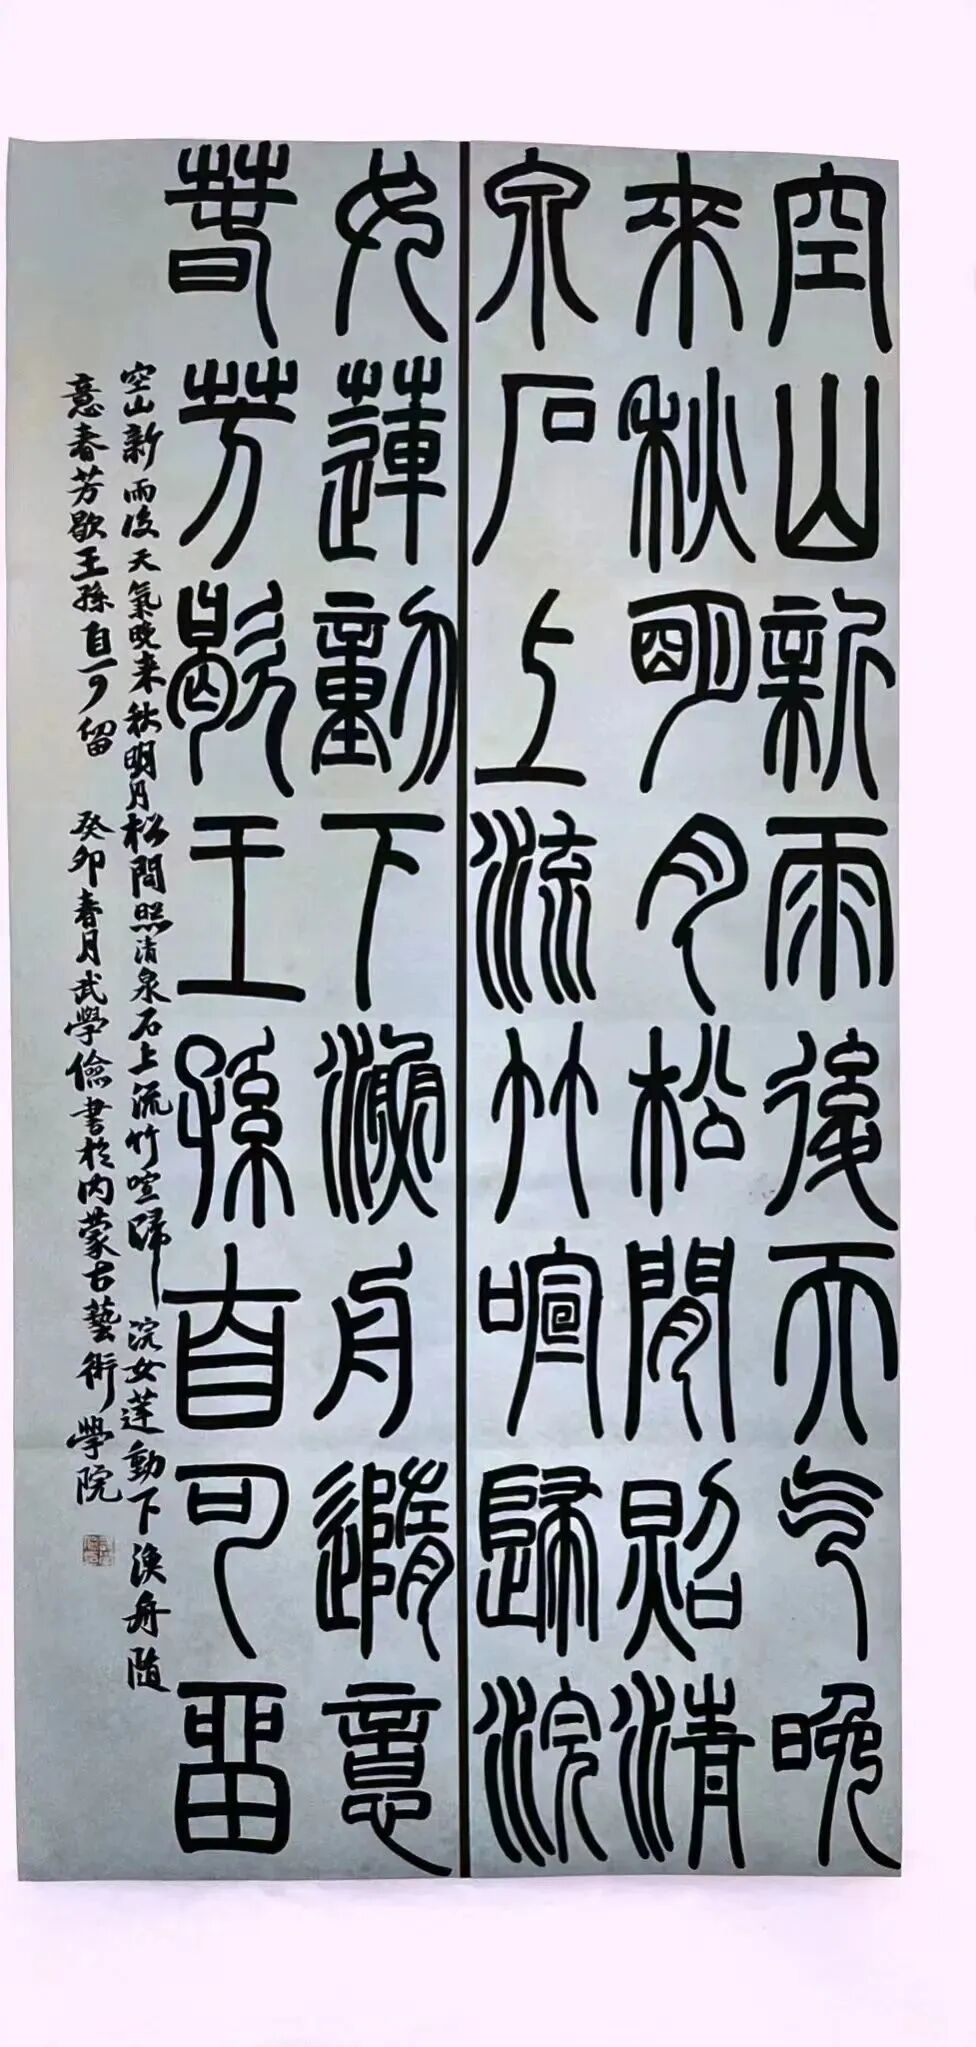 空山新雨後天气晚
來秋明月松間照清
泉石上流竹喧歸浣
女蓮動下漁舟隨意
春芳歇王孫自可留
空山新雨後天氣晚来秋明月松間照清泉石上流竹喧歸浣女蓮動下漁舟随
意春芳歇王孫自可留 癸卯春月武學儉書於内蒙古藝術學院